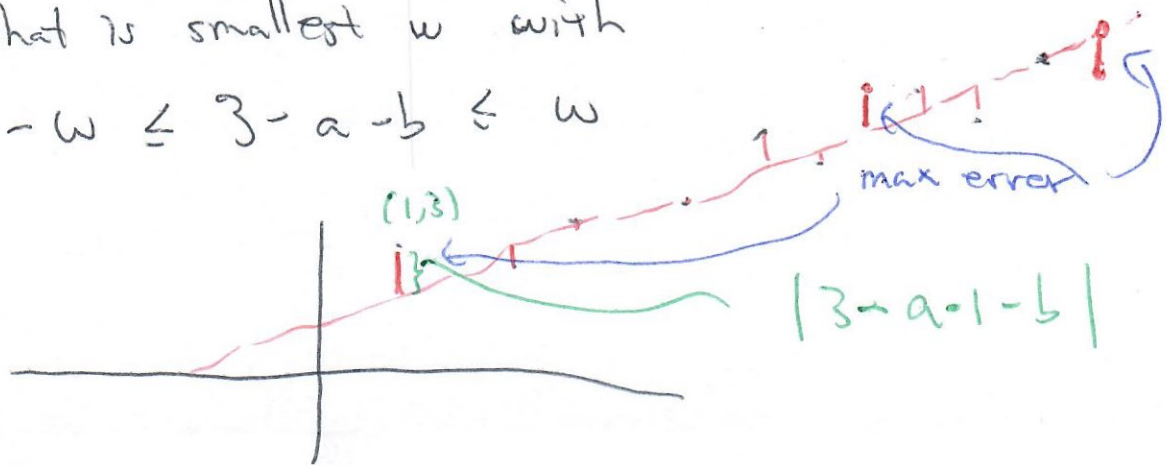 hat is smallest w with
-w ≤ 3-a-b ≤ w
(1,3)
max error
|3-a·1-b|